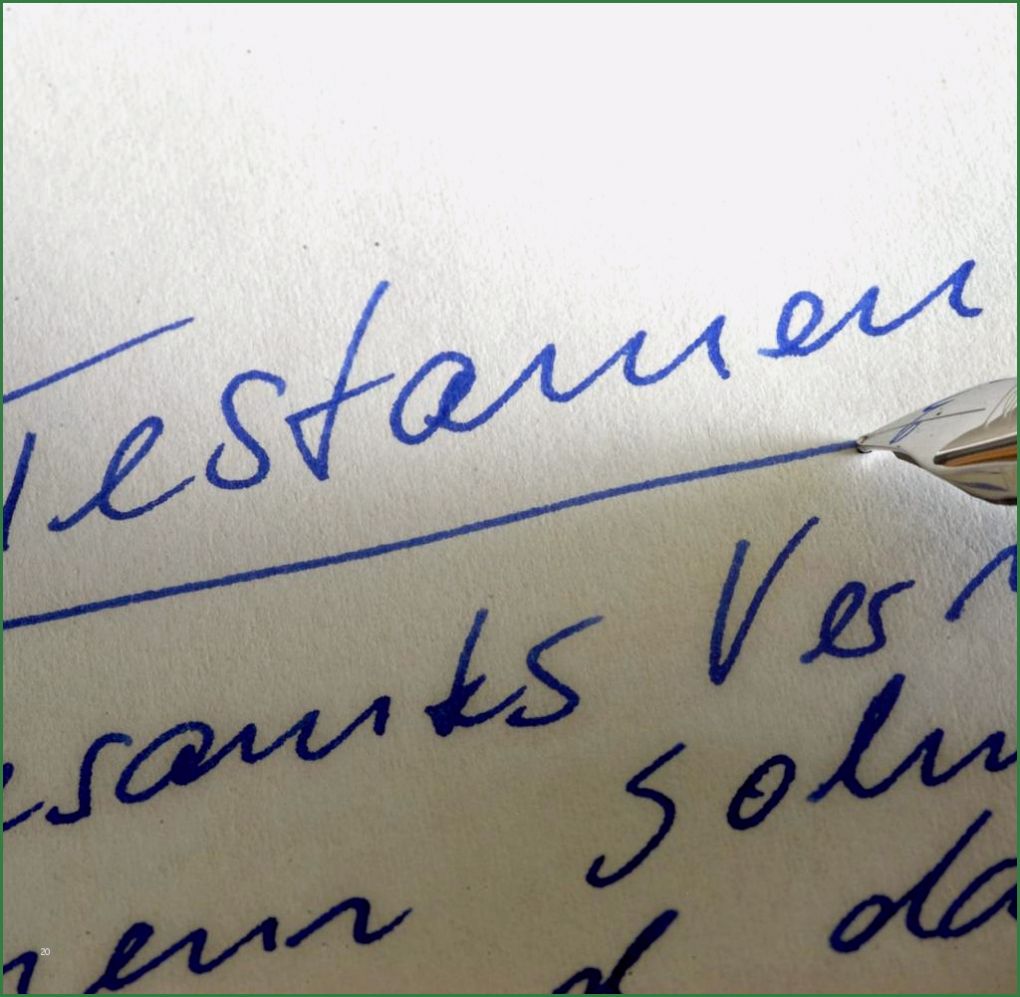 Testamen
esamtes Ver
Sohn
da
20